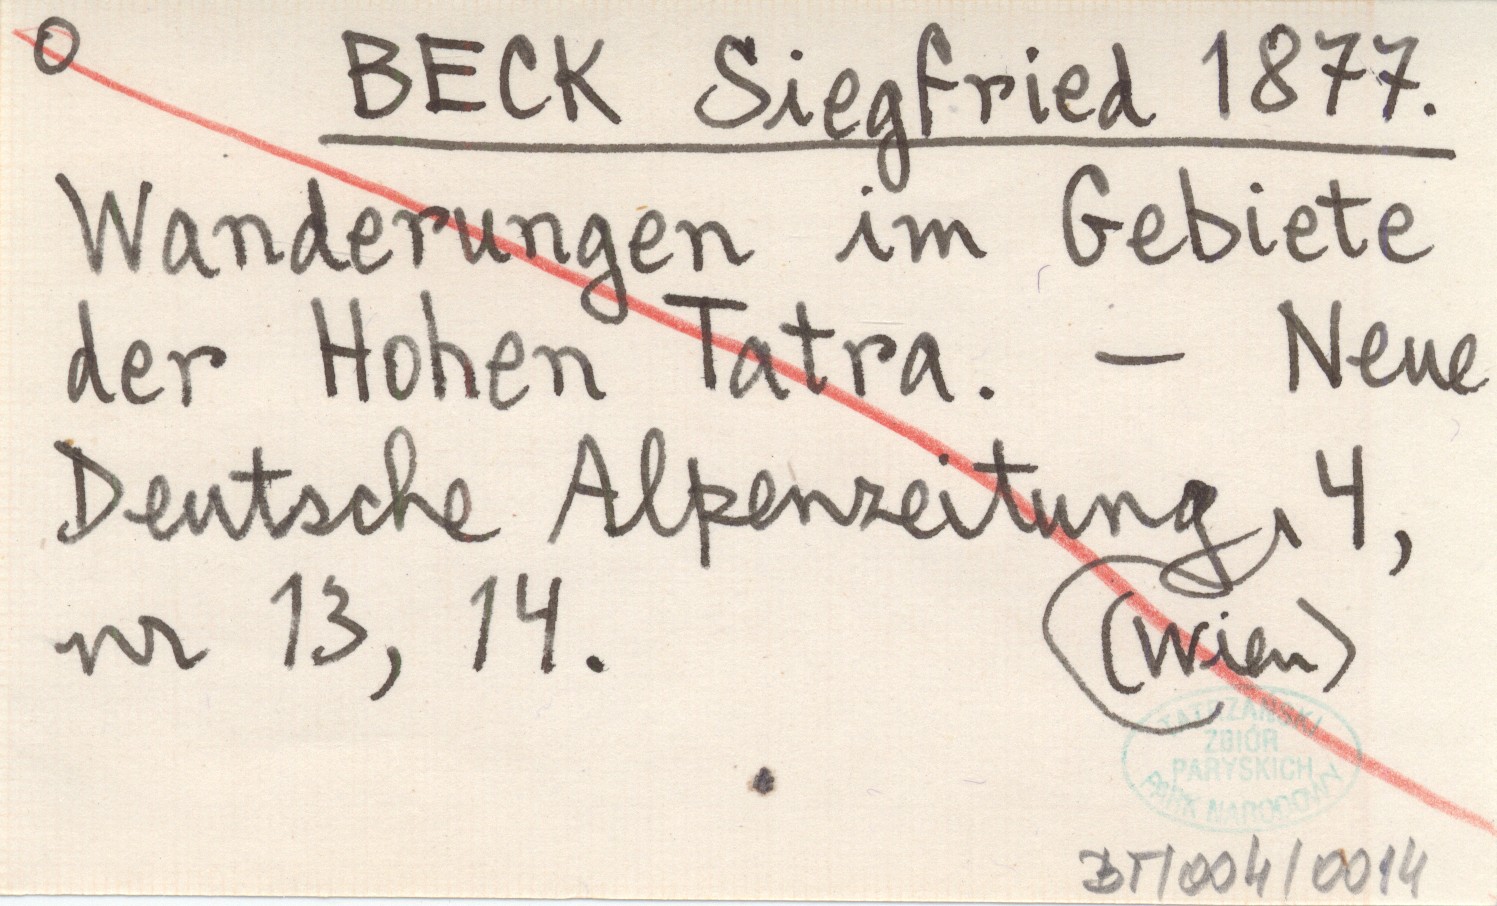 O
BECK Siegfried 1877.
Wanderungen im Gebiete
der Hohen Tatra. — Neue
Deutsche Alpenzeitung, 4,
nr 13, 14.
(Wien)
TATRZAŃSKI
ZBIÓR
PARYSKICH
PARK NARODOWY
BT/004/0014